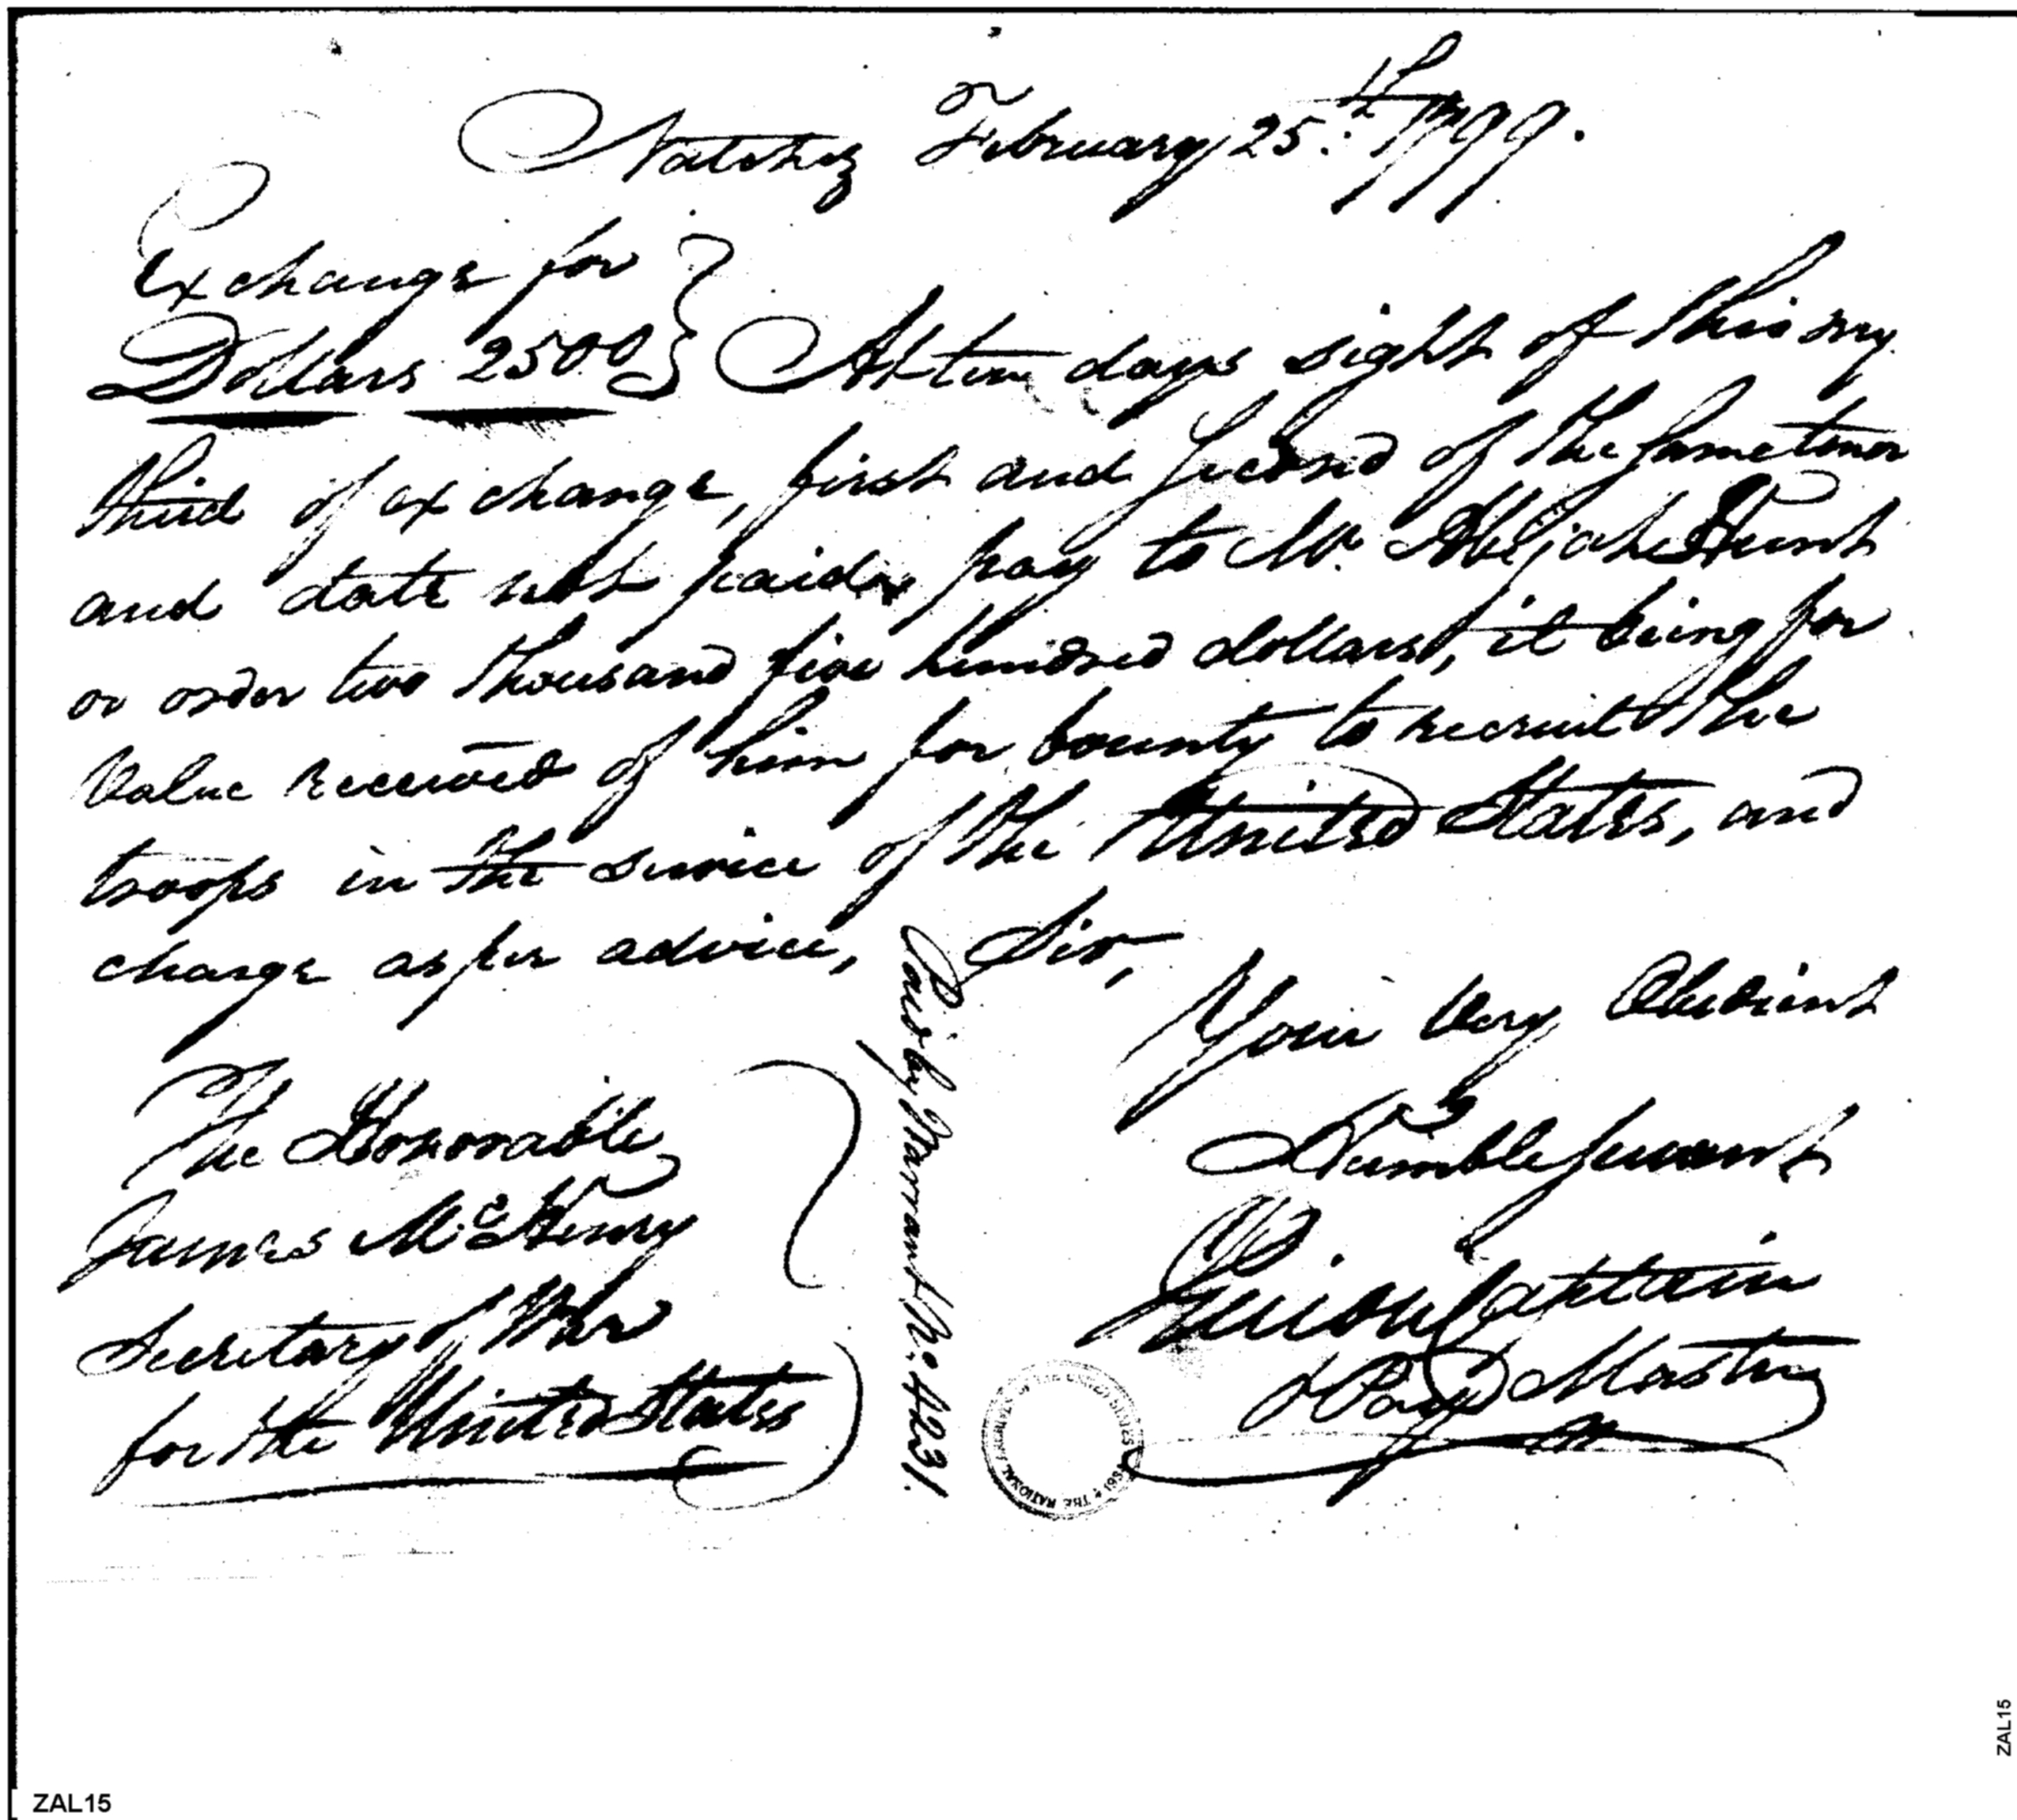 Natchez February 25.th 1799.
Exchange for
Dollars 2500
At ten days sight of this my
third of exchange, first and second of the same tenor
and date not paid, pay to Mr. Abijah Hunt
or order two thousand five hundred dollars, it being for
value received of him for bounty to recruit the
troops in the service of the United States, and
charge as per advice,
Sir,
Your very Obedient
Humble servant
Guion Captain
& Pay Master
The Honorable
James McHenry
Secretary of War
for the United States
Paid by Warrant No. 4231.
THE NATIONAL ARCHIVES OF THE UNITED STATES
ZAL15
ZAL15